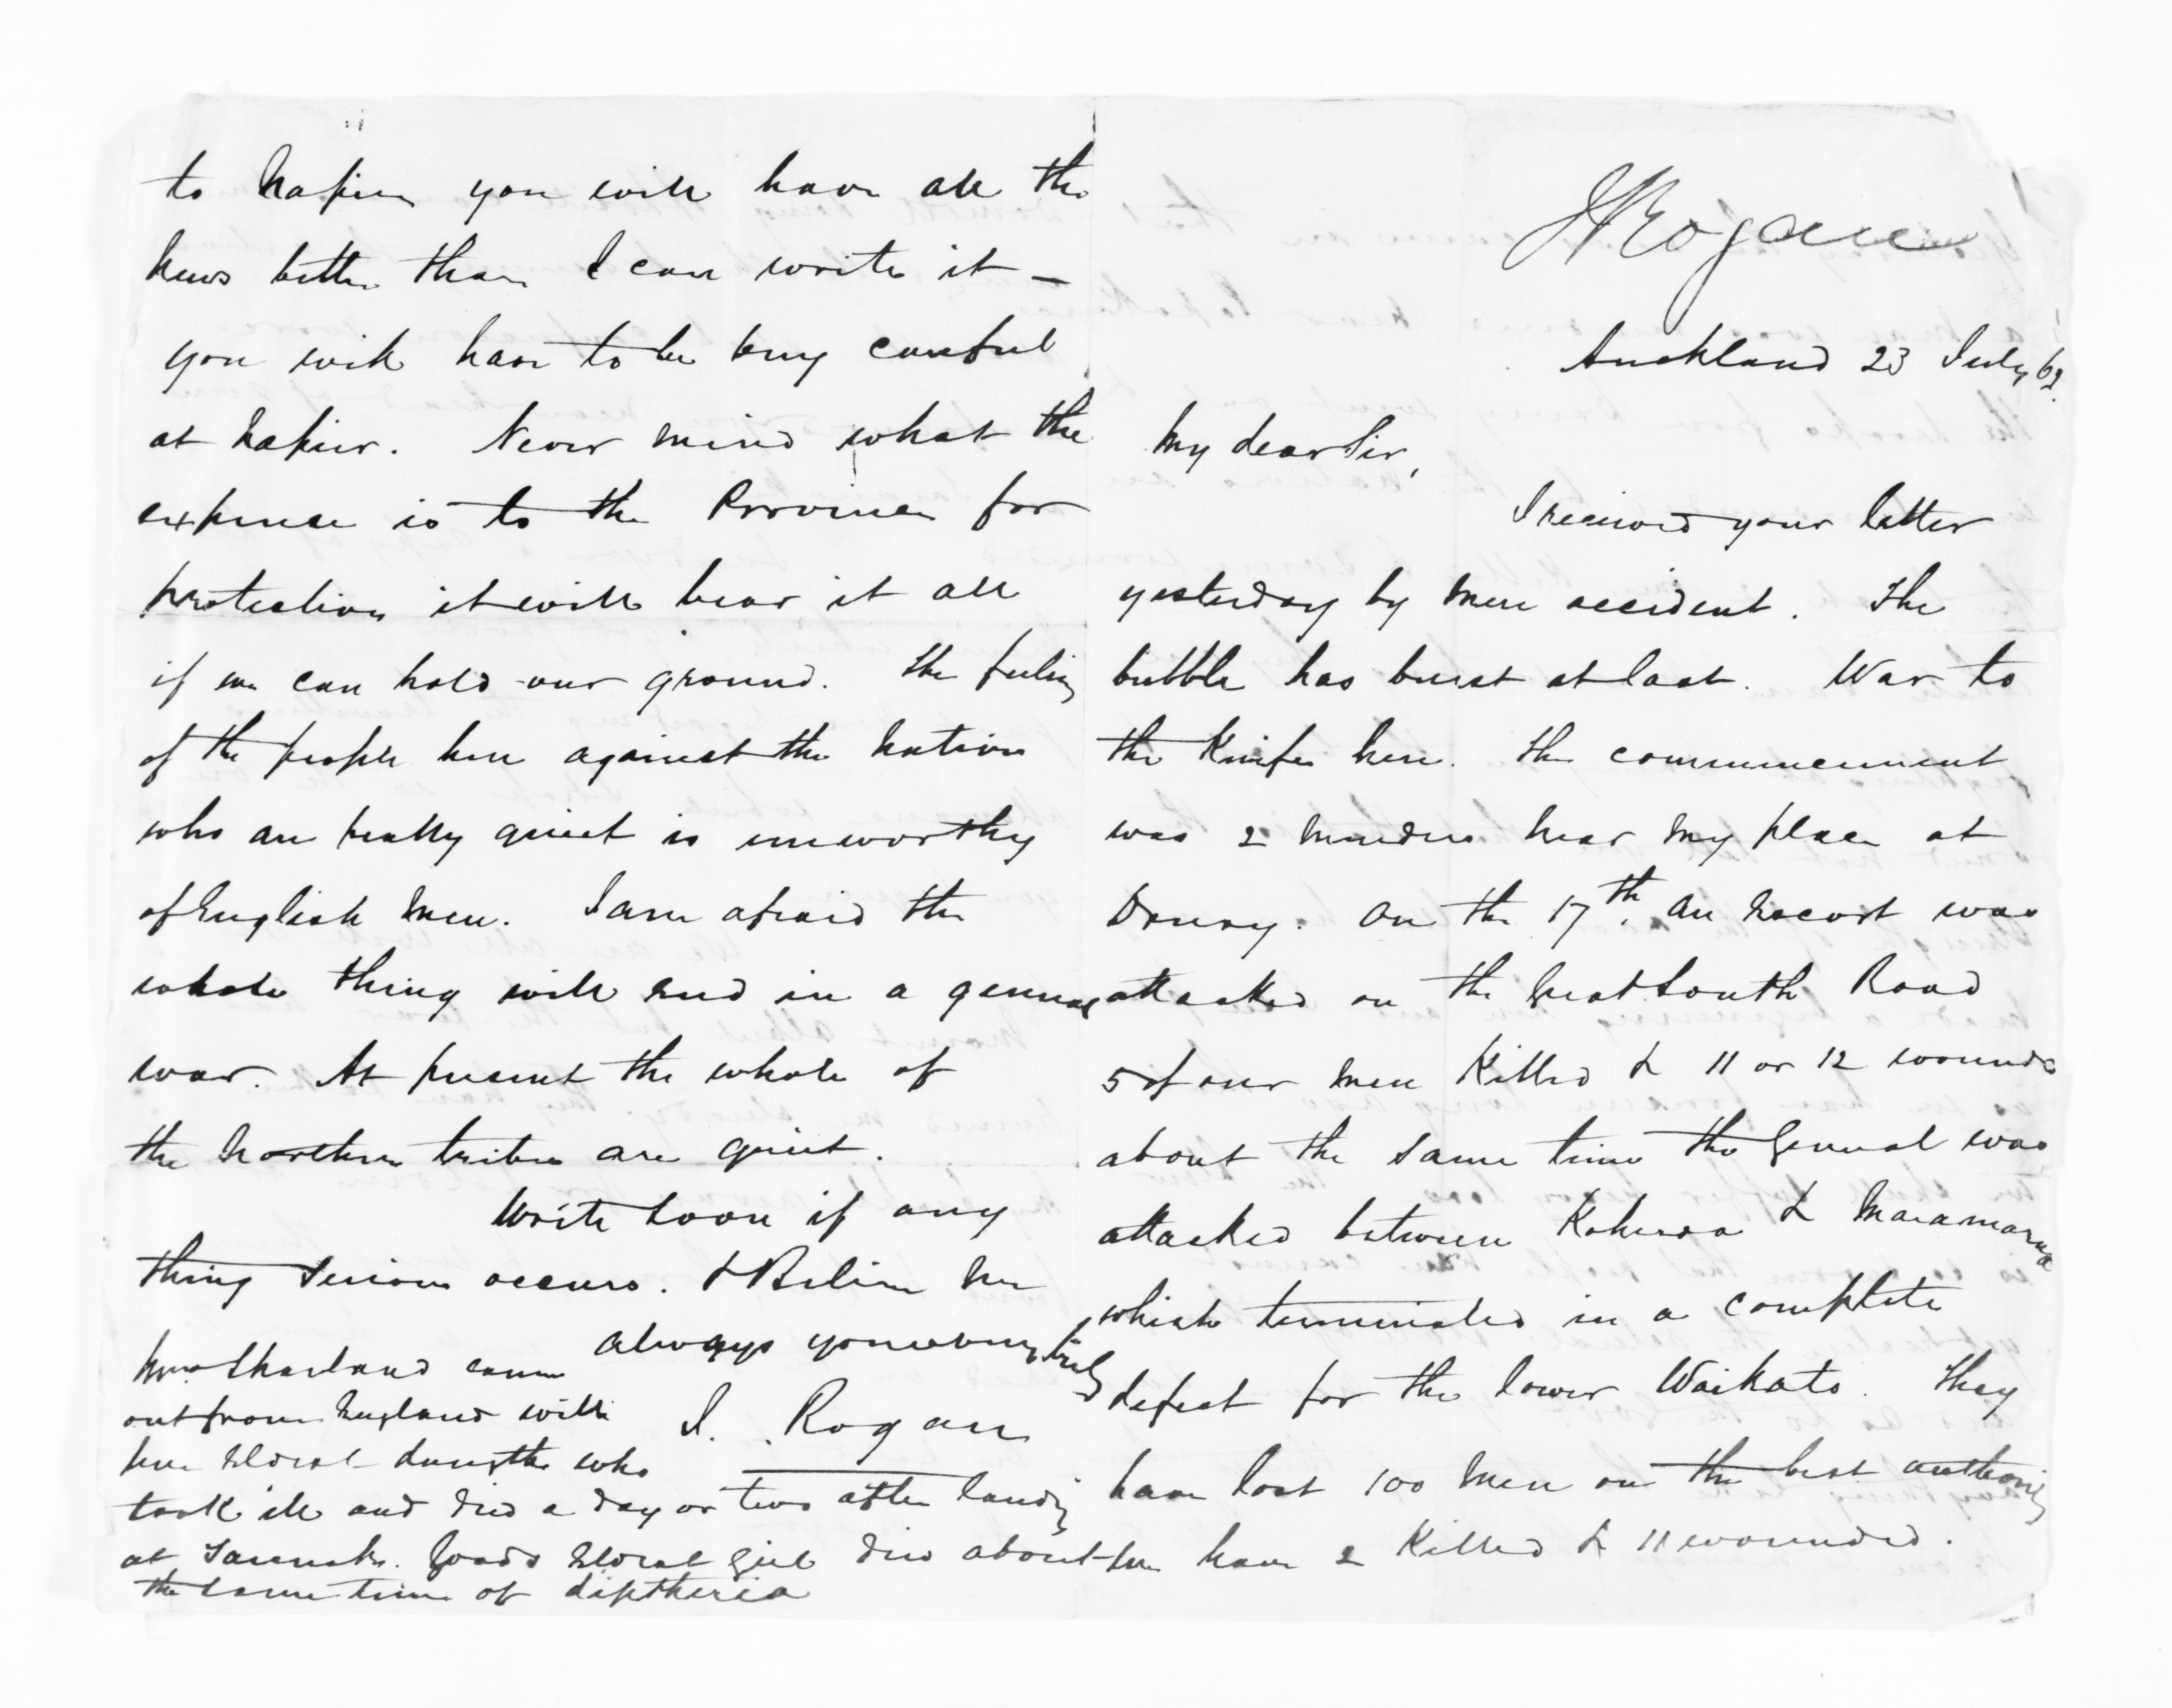 J Rogan
Auckland 23 July 63
My dear Sir,
I received your letter
yesterday by mere accident. The
bubble has burst at last. War to
the Knife here. The commencement
was 2 murders near my place at
Drury. On the 17th. an Escort was
attacked on the Great South Road
5 of our men Killed & 11 or 12 wounded
about the same time the General was
attacked between Koheroa & Maramarua
which terminated in a complete
defeat for the lower Waikato. They
have lost 100 men on the best authority
we have 2 Killed & 11 wounded.
to Napier you will have all the
news better than I can write it —
you will have to be very careful
at Napier. Never mind what the
expense is to the Province for
protection it will bear it all
if we can hold our ground. The feeling
of the people here against the natives
who are really quiet is unworthy
of English men. I am afraid the
whole thing will end in a general
war. At present the whole of
the Northern tribes are quiet.
Write soon if any
thing serious occurs. & Believe me
always yours very truly
J. Rogan
Mrs Sharland came
out from England with
her eldest daughter who
took ill and died a day or two after landing
at Taranaki. Goods eldest girl died about
the same time of diptheria